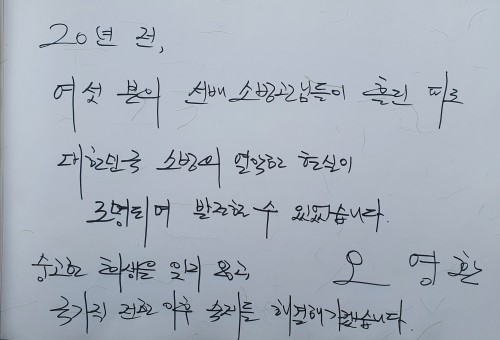 20년 전,
여섯 분의 선배 소방관님들이 흘린 피로
대한민국 소방의 열악한 현실이
조명되어 발전할 수 있었습니다.
숭고한 희생을 잊지 않고,
국가직 전환 이후 숙제를 해결해가겠습니다.
오영환